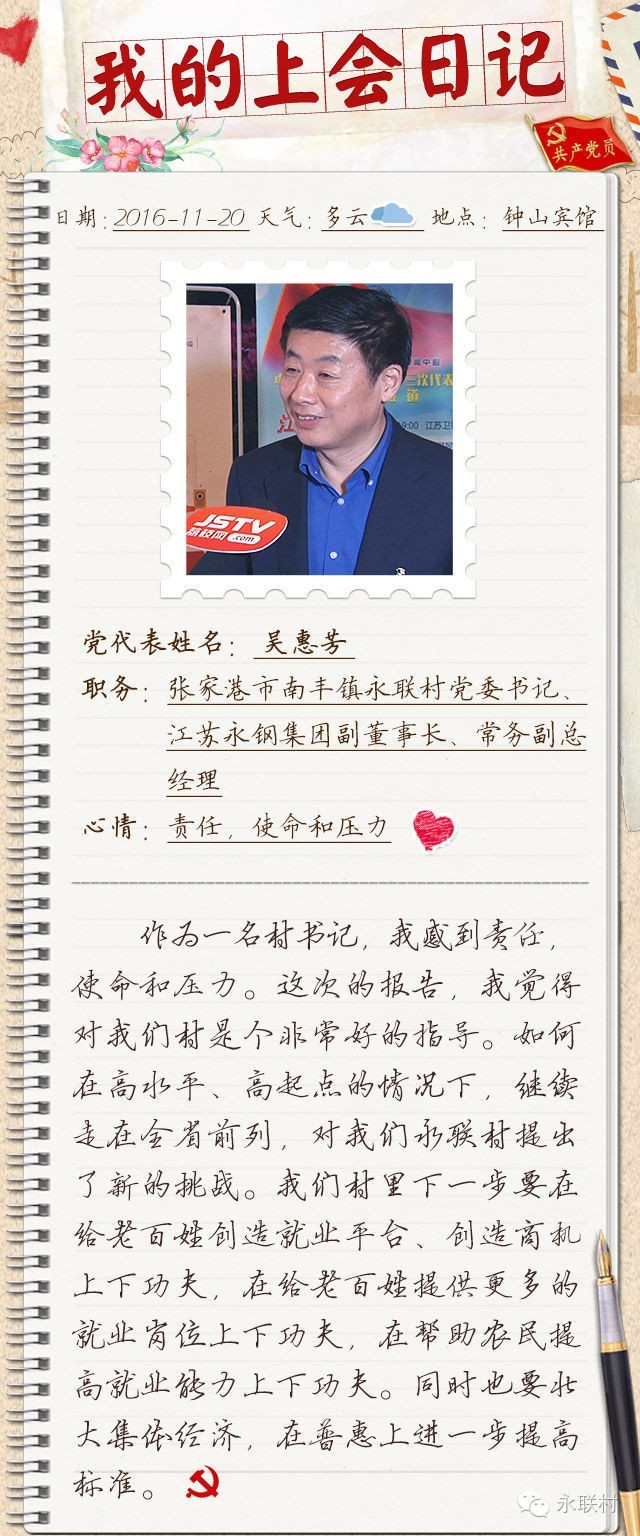 我的上会日记
共产党员
日期：2016-11-20 天气：多云 地点：钟山宾馆
三次代表
道
江苏卫
JSTV
荔枝网.com
党代表姓名：吴惠芳
职务：张家港市南丰镇永联村党委书记、
江苏永钢集团副董事长、常务副总
经理
心情：责任，使命和压力
作为一名村书记，我感到责任，
使命和压力。这次的报告，我觉得
对我们村是个非常好的指导。如何
在高水平、高起点的情况下，继续
走在全省前列，对我们永联村提出
了新的挑战。我们村里下一步要在
给老百姓创造就业平台、创造商机
上下功夫，在给老百姓提供更多的
就业岗位上下功夫，在帮助农民提
高就业能力上下功夫。同时也要壮
大集体经济，在普惠上进一步提高
标准。
永联村